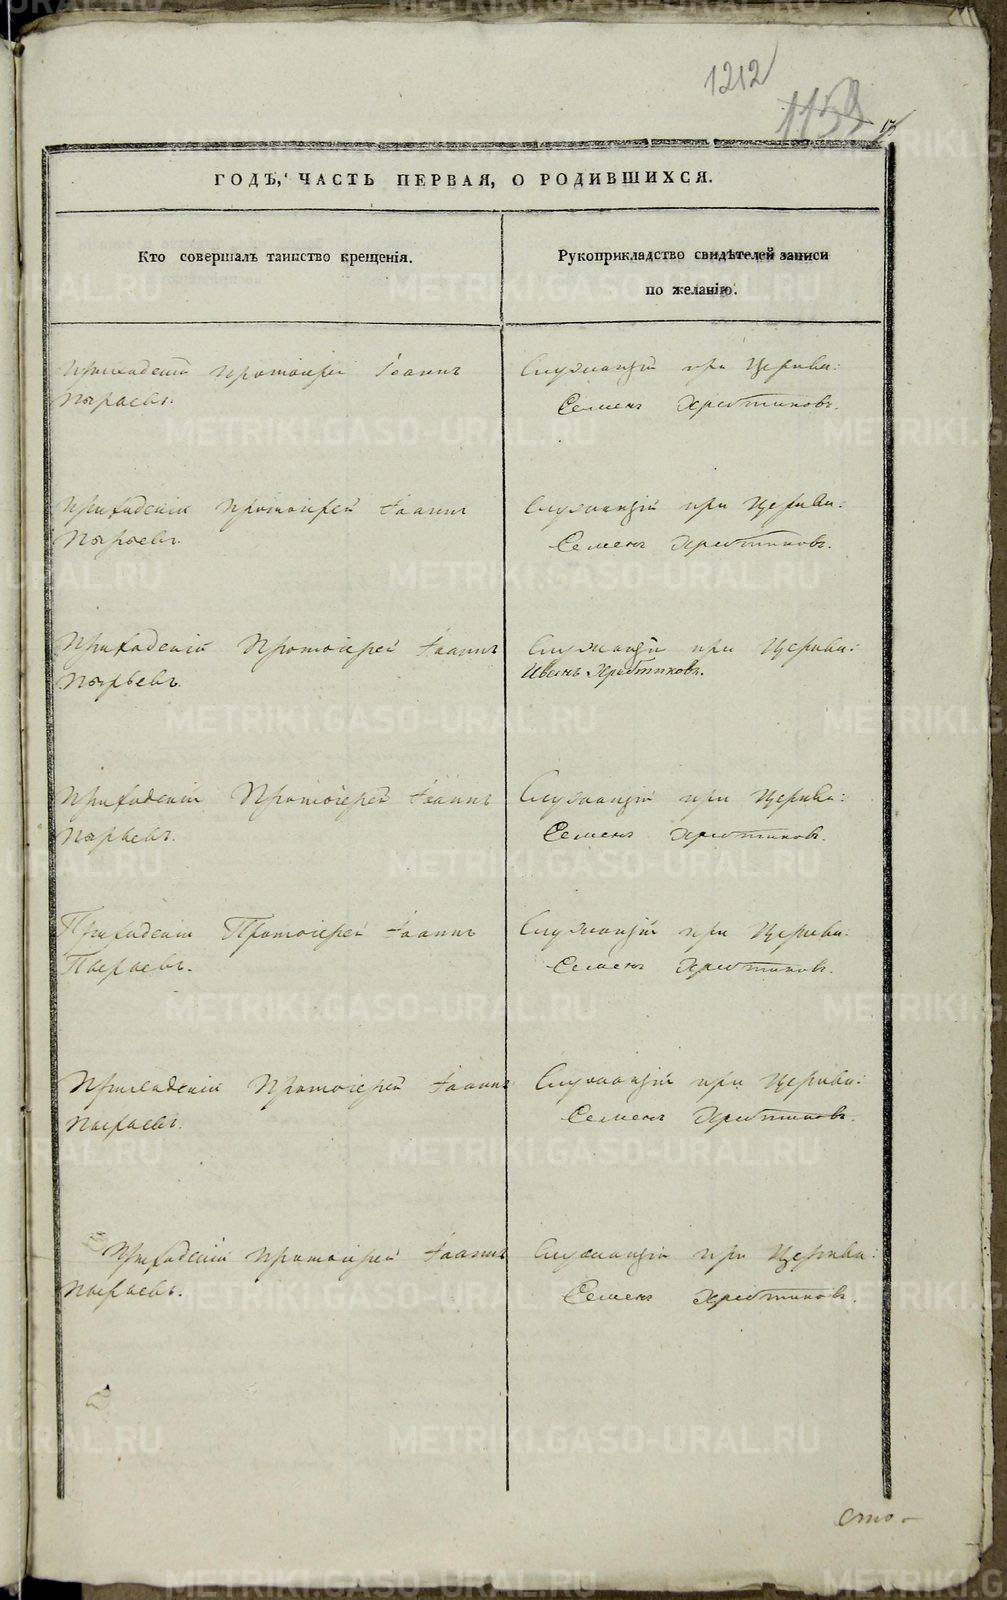 1212
1159
17
ГОДЪ, ЧАСТЬ ПЕРВАЯ, О РОДИВШИХСЯ.
Кто совершалъ таинство крещенія.
Рукоприкладство свидѣтелей записи
по желанію.
Протоіерей Іоаннъ
Пырьевъ.
Служащій при Церкви:
Семенъ Хребтиковъ.
Протоіерей Іоаннъ
Пырьевъ.
Служащій при Церкви:
Семенъ Хребтиковъ.
Протоіерей Іоаннъ
Пырьевъ.
Служащій при Церкви:
Иванъ Хребтиковъ.
Протоіерей Іоаннъ
Пырьевъ.
Служащій при Церкви:
Семенъ Хребтиковъ.
Протоіерей Іоаннъ
Пырьевъ.
Служащій при Церкви:
Семенъ Хребтиковъ.
Протоіерей Іоаннъ
Пырьевъ.
Служащій при Церкви:
Семенъ Хребтиковъ.
Протоіерей Іоаннъ
Пырьевъ.
Служащій при Церкви:
Семенъ Хребтиковъ.
сто-
METRIKI.GASO-URAL.RU